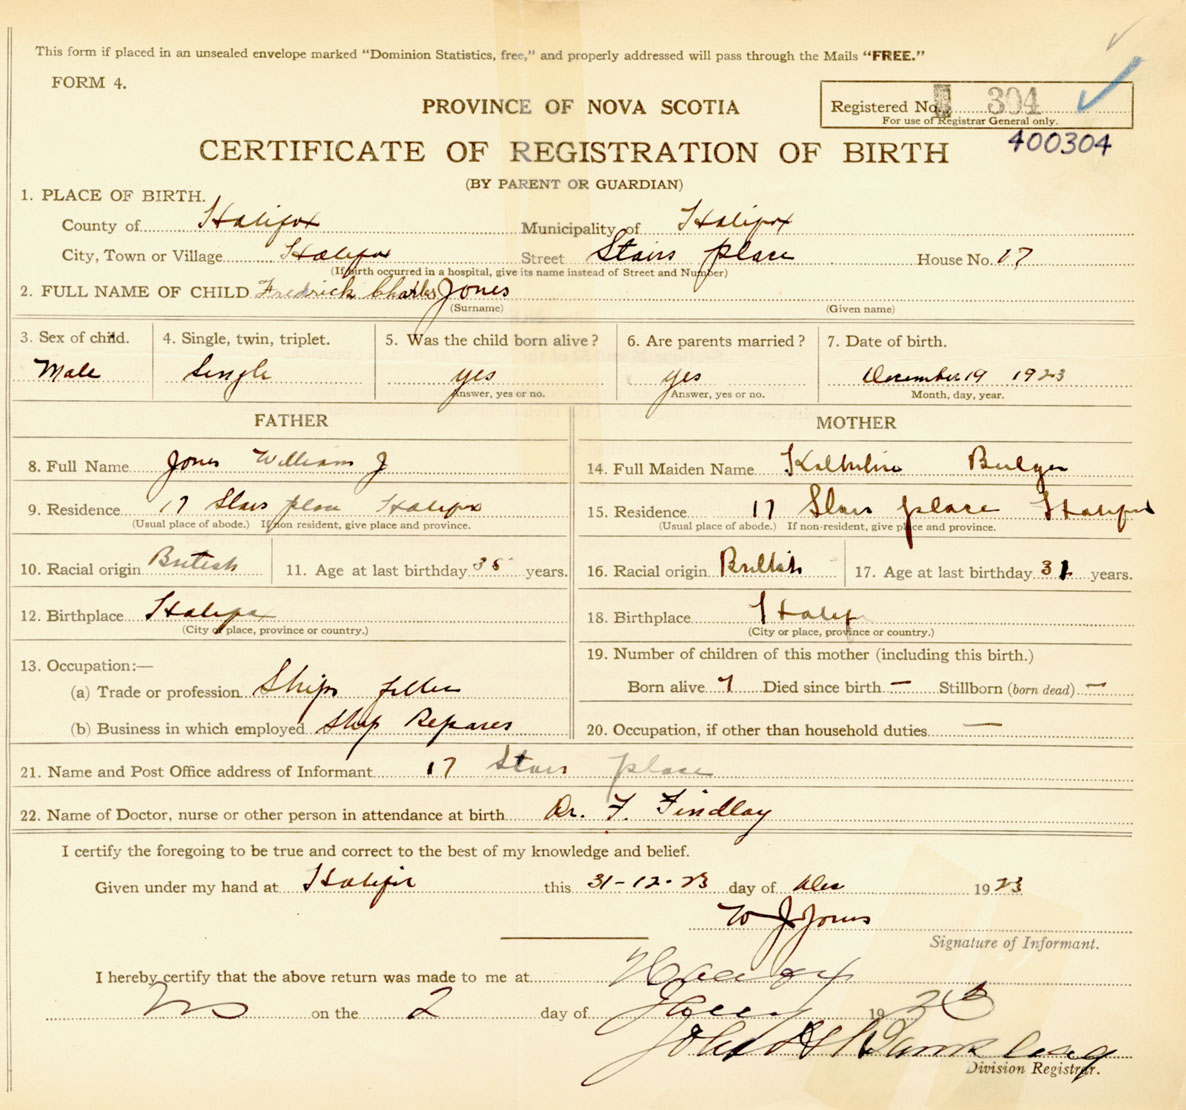 This form if placed in an unsealed envelope marked "Dominion Statistics, free," and properly addressed will pass through the Mails "FREE."
FORM 4.
PROVINCE OF NOVA SCOTIA
Registered No. 304
For use of Registrar General only.
400304
CERTIFICATE OF REGISTRATION OF BIRTH
(BY PARENT OR GUARDIAN)
1. PLACE OF BIRTH.
County of Halifax Municipality of Halifax
City, Town or Village Halifax Street Stairs place House No. 17
(If birth occurred in a hospital, give its name instead of Street and Number)
2. FULL NAME OF CHILD Fredrick Charles Jones
(Surname) (Given name)
3. Sex of child. 4. Single, twin, triplet. 5. Was the child born alive? 6. Are parents married? 7. Date of birth.
Male Single yes yes December 19 1923
Answer, yes or no. Answer, yes or no. Month, day, year.
FATHER MOTHER
8. Full Name Jones William J 14. Full Maiden Name Katherine Bulger
9. Residence 17 Stairs place Halifax 15. Residence 17 Stairs place Halifax
(Usual place of abode.) If non-resident, give place and province. (Usual place of abode.) If non-resident, give place and province.
10. Racial origin British 11. Age at last birthday years. 16. Racial origin British 17. Age at last birthday years.
12. Birthplace Halifax 18. Birthplace Halifax
(City or place, province or country.) (City or place, province or country.)
13. Occupation:— 19. Number of children of this mother (including this birth.)
(a) Trade or profession Ships fitter Born alive 7 Died since birth — Stillborn (born dead) —
(b) Business in which employed Ship Repares 20. Occupation, if other than household duties —
21. Name and Post Office address of Informant 17 Stairs place
22. Name of Doctor, nurse or other person in attendance at birth Dr. F. Findlay
I certify the foregoing to be true and correct to the best of my knowledge and belief.
Given under my hand at Halifax this 31-12-23 day of Dec 1923
W J Jones
Signature of Informant.
I hereby certify that the above return was made to me at
NS on the 2 day of 19
Division Registrar.